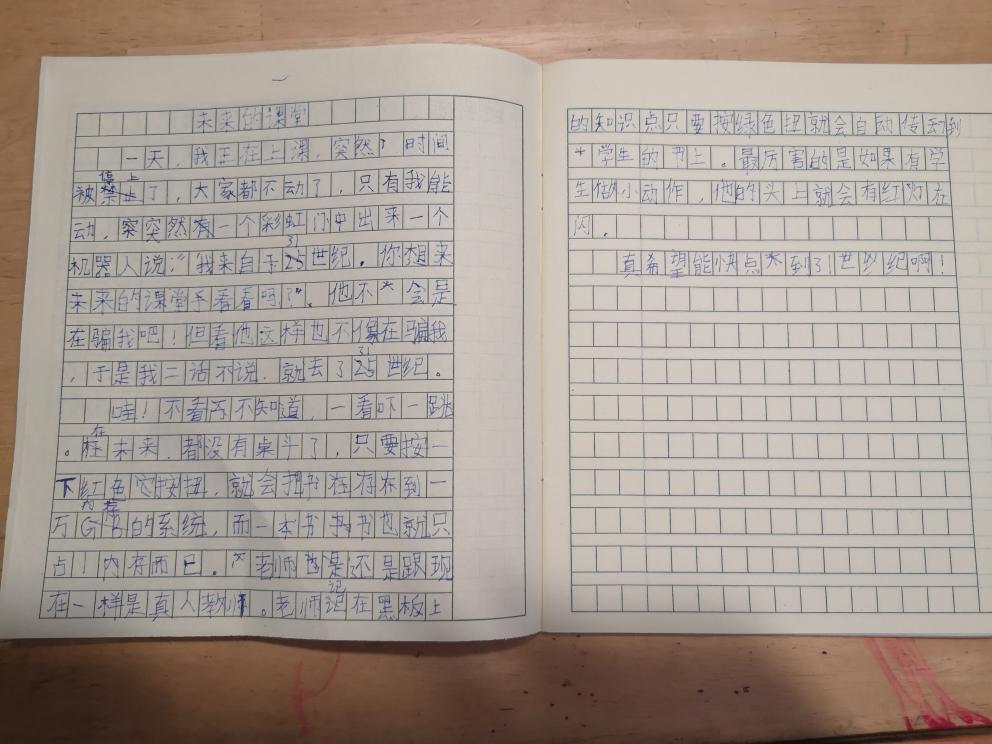 未来的课堂
一天，我正在上课，突然，时间
停止
被禁止了，大家都不动了，只有我能
动，突然有一个彩虹门中出来一个
31
机器人说：“我来自于25世纪。你想来
未来的课堂看看吗？”。他不会是
在骗我吧！但看他这样也不像在骗我
31
，于是我二话不说，就去了25世纪。
哇！不看不知道，一看吓一跳
在
。在未来，都没有桌斗了，只要按一
下红色按扭，就会把书存到一
内存
万GB的系统，而一本书也就只
占1内存而已。老师还是跟现
在一样是真人教师。老师记在黑板上
记
的知识点只要按绿色扭就会自动传到
学生的书上。最厉害的是如果有学
生做小动作，他的头上就会有红灯在
闪。
真希望能快点到31世纪啊！